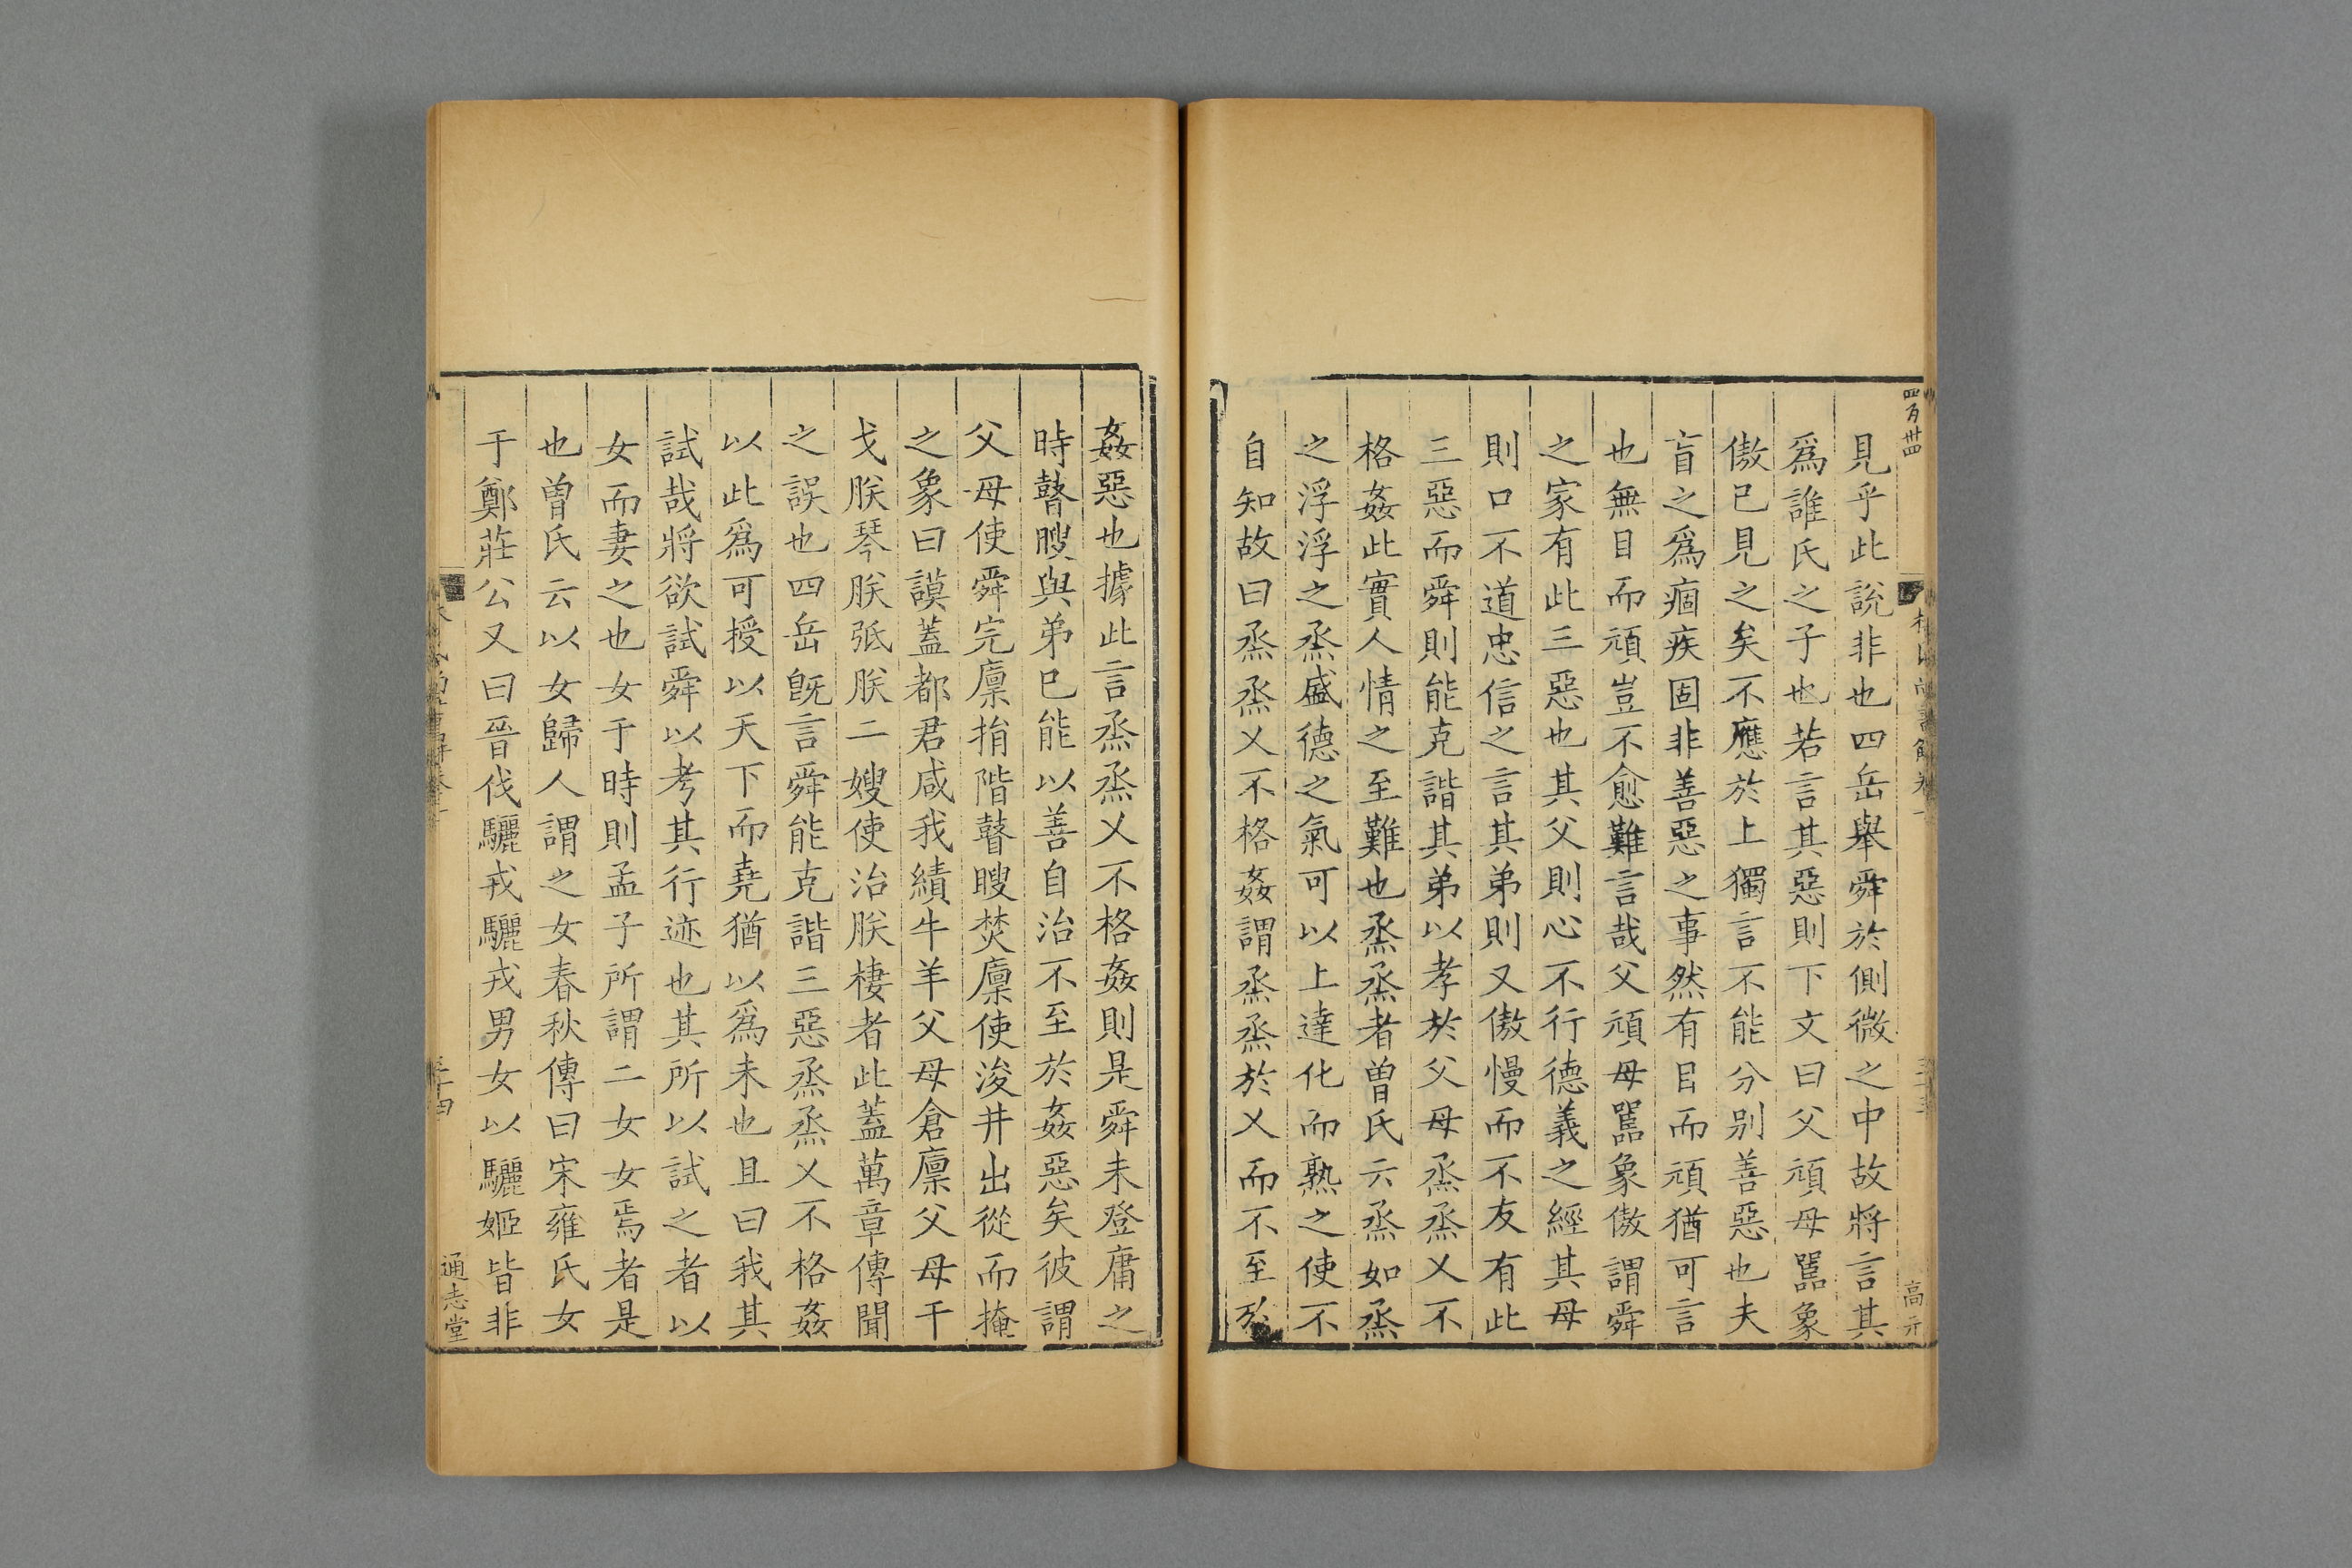 四百卅四
高元
見乎此說非也四岳舉舜於側微之中故將言其
爲誰氏之子也若言其惡則下文曰父頑母嚚象
傲已見之矣不應於上獨言不能分别善惡也夫
盲之爲痼疾固非善惡之事然有目而頑猶可言
也無目而頑豈不愈難言哉父頑母嚚象傲謂舜
之家有此三惡也其父則心不行德義之經其母
則口不道忠信之言其弟則又傲慢而不友有此
三惡而舜則能克諧其弟以孝於父母烝烝乂不
格姦此實人情之至難也烝烝者曾氏云烝如烝
之浮浮之烝盛德之氣可以上達化而熟之使不
自知故曰烝烝乂不格姦謂烝烝於乂而不至於
姦惡也據此言烝烝乂不格姦則是舜未登庸之
時瞽瞍與弟已能以善自治不至於姦惡矣彼謂
父母使舜完廩捐階瞽瞍焚廩使浚井出從而掩
之象曰謨蓋都君咸我績牛羊父母倉廩父母干
戈朕琴朕弤朕二嫂使治朕棲者此蓋萬章傳聞
之誤也四岳旣言舜能克諧三惡烝烝乂不格姦
以此爲可授以天下而堯猶以爲未也且曰我其
試哉將欲試舜以考其行迹也其所以試之者以
女而妻之也女于時則孟子所謂二女女焉者是
也曾氏云以女歸人謂之女春秋傳曰宋雍氏女
于鄭莊公又曰晉伐驪戎驪戎男女以驪姬皆非
三十四
通志堂